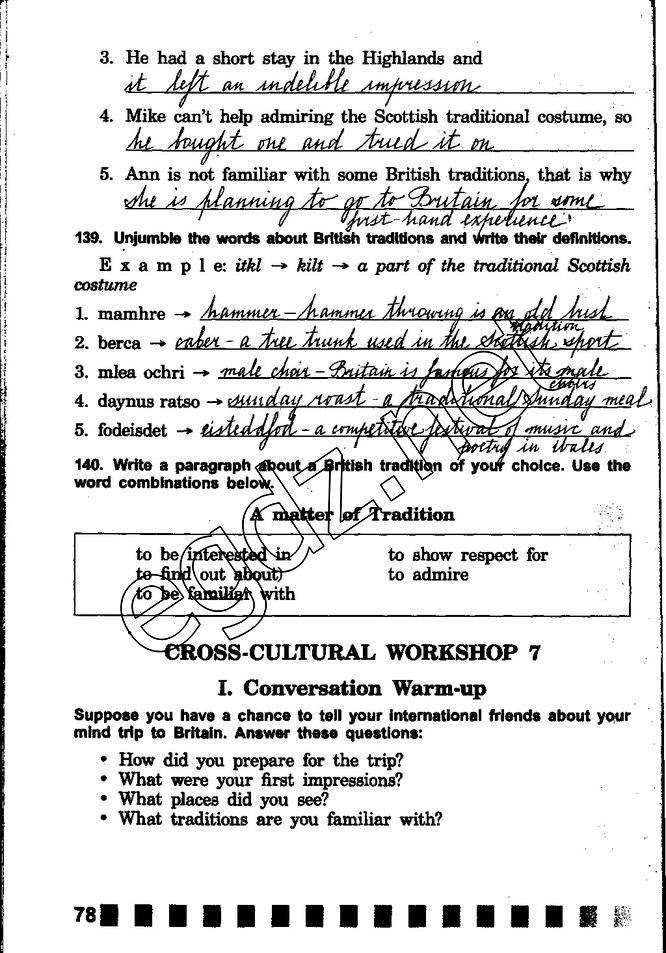 3. He had a short stay in the Highlands and
it left an indelible impression
4. Mike can't help admiring the Scottish traditional costume, so
he bought one and tried it on
5. Ann is not familiar with some British traditions, that is why
she is planning to go to Britain for some
first-hand experience.
139. Unjumble the words about British traditions and write their definitions.
E x a m p l e: itkl → kilt → a part of the traditional Scottish
costume
1. mamhre → hammer – hammer throwing is an old Irish
tradition
2. berca → caber – a tree trunk used in the Scottish sport
3. mlea ochri → male choir – Britain is famous for its male
choirs
4. daynus ratso → sunday roast – a traditional Sunday meal
5. fodeisdet → eisteddfod – a competitive festival of music and
poetry in Wales
140. Write a paragraph about a British tradition of your choice. Use the
word combinations below.
A matter of Tradition
to be interested in to show respect for
to find out about to admire
to be familiar with
egdz.net
CROSS-CULTURAL WORKSHOP 7
I. Conversation Warm-up
Suppose you have a chance to tell your international friends about your
mind trip to Britain. Answer these questions:
• How did you prepare for the trip?
• What were your first impressions?
• What places did you see?
• What traditions are you familiar with?
78